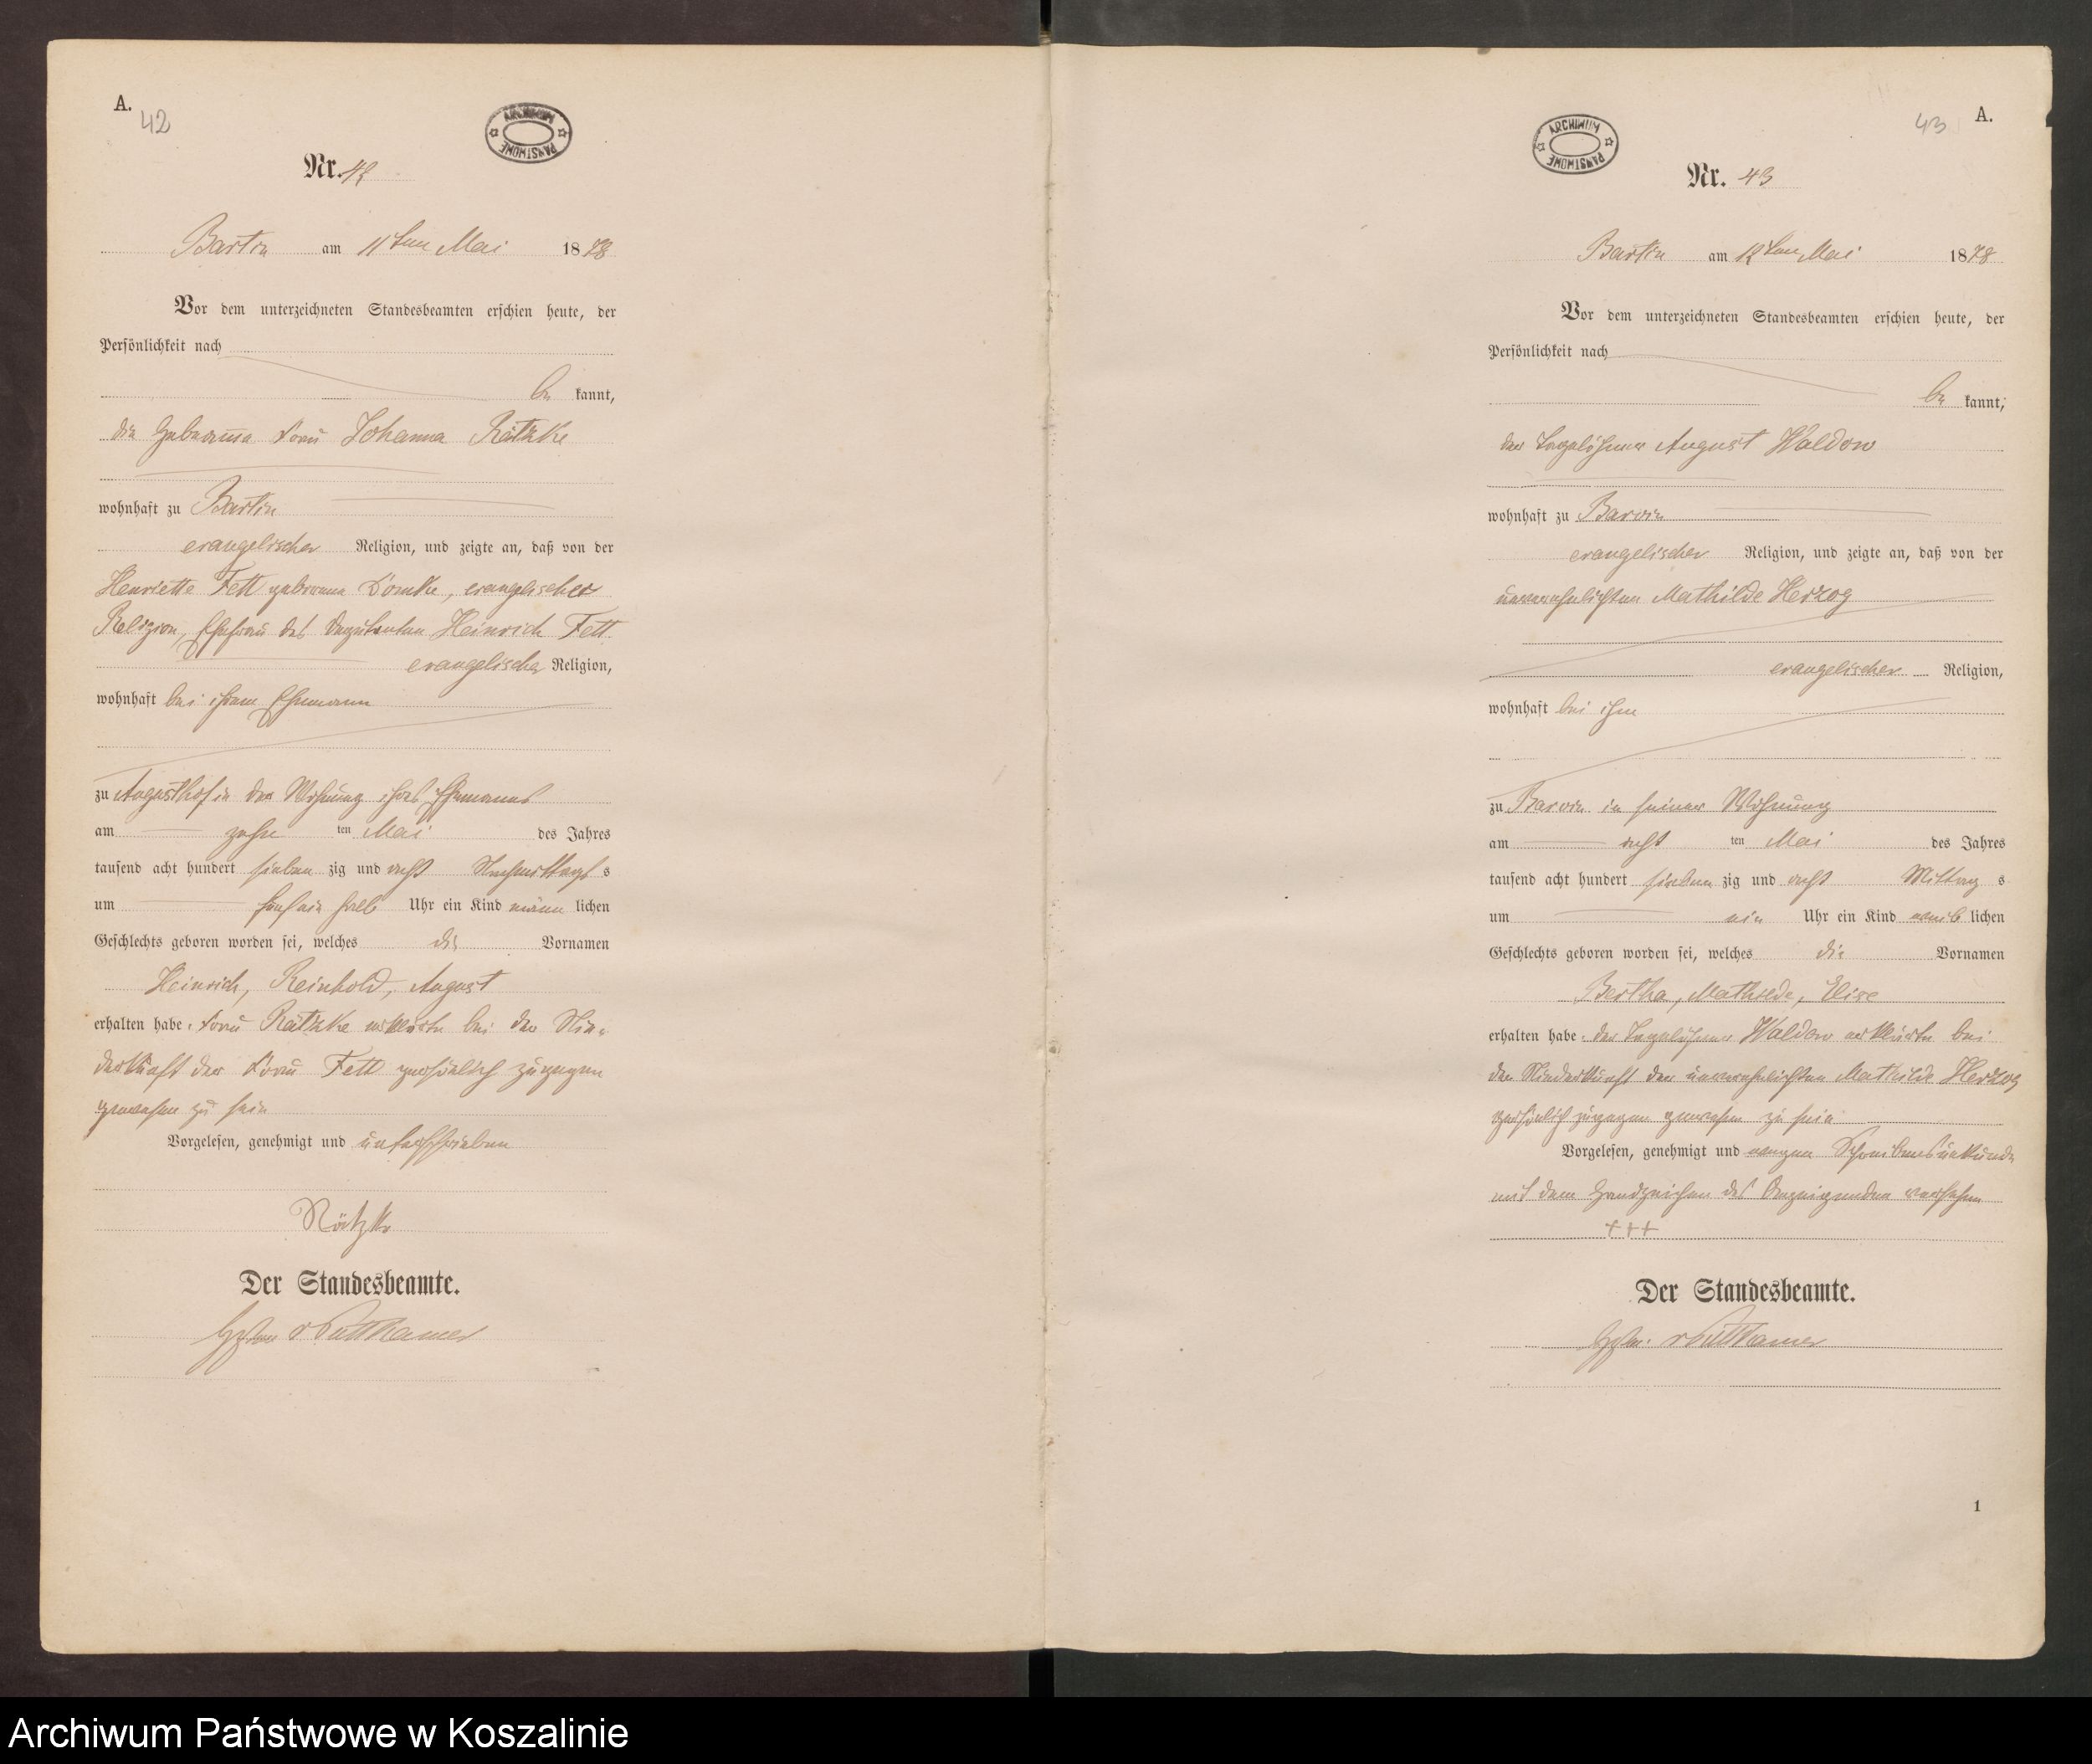 A.
42
ARCHIWUM PAŃSTWOWE
Nr. 42
Bartin am 11ten Mai 1878
Vor dem unterzeichneten Standesbeamten erschien heute, der
Persönlichkeit nach
be kannt,
die Hebamme Frau Johanna Rätzke
wohnhaft zu Bartin
evangelischer Religion, und zeigte an, daß von der
Henriette Fett geborene Domke, evangelischer
Religion, Ehefrau des Deputanten Heinrich Fett
evangelischer Religion,
wohnhaft bei ihrem Ehemann
zu Augusthof in der Wohnung ihres Ehemanns
am zehn ten Mai des Jahres
tausend acht hundert sieben zig und acht Nachmittag s
um fünf ein halb Uhr ein Kind männ lichen
Geschlechts geboren worden sei, welches die Vornamen
Heinrich, Reinhold, August
erhalten habe. Frau Rätzke erklärte bei der Nie-
derkunft der Frau Fett persönlich zugegen
gewesen zu sein
Vorgelesen, genehmigt und unterschrieben
Rätzke
Der Standesbeamte.
v Puttkamer
A.
43
ARCHIWUM PAŃSTWOWE
Nr. 43
Bartin am 12ten Mai 1878
Vor dem unterzeichneten Standesbeamten erschien heute, der
Persönlichkeit nach
be kannt,
der Tagelöhner August Waldow
wohnhaft zu Barvin
evangelischer Religion, und zeigte an, daß von der
unverehelichten Mathilde Herzog
evangelischer Religion,
wohnhaft bei ihm
zu Barvin in seiner Wohnung
am acht ten Mai des Jahres
tausend acht hundert sieben zig und acht Mittag s
um ein Uhr ein Kind weib lichen
Geschlechts geboren worden sei, welches die Vornamen
Bertha, Mathilde, Elise
erhalten habe. der Tagelöhner Waldow erklärte bei
der Niederkunft der unverehelichten Mathilde Herzog
persönlich zugegen gewesen zu sein
Vorgelesen, genehmigt und wegen Schreibensunkunde
mit dem Handzeichen des Anzeigenden versehen
+++
Der Standesbeamte.
v Puttkamer
1
Archiwum Państwowe w Koszalinie